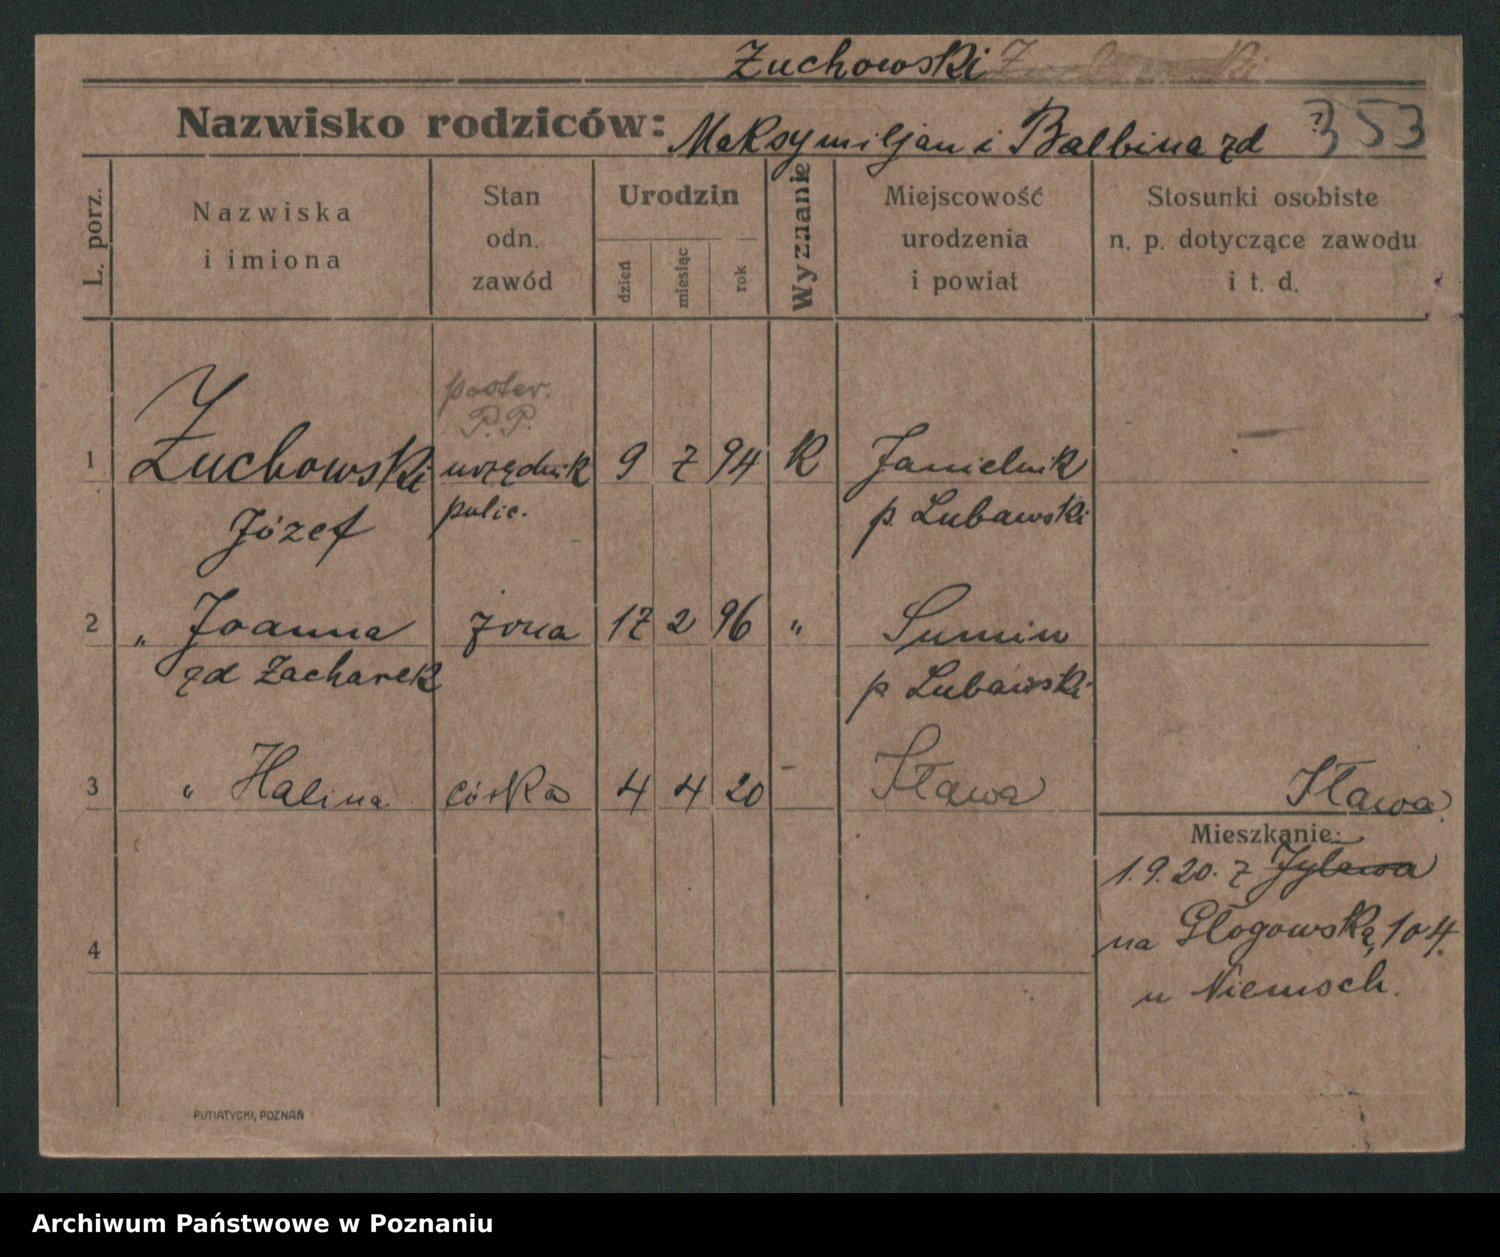 Żuchowski
Nazwisko rodziców: Maksymiljan i Balbina zd
353
L. porz.
Nazwiska
i imiona
Stan
odn.
zawód
Urodzin
dzień
miesiąc
rok
Wyznanie
Miejscowość
urodzenia
i powiat
Stosunki osobiste
n. p. dotyczące zawodu
i t. d.
poster.
P.P.
1 Żuchowski urzędnik 9 7 94 K Jamielnik
Józef polic. p. Lubawski
2 „ Joanna żona 17 2 96 „ Sumin
zd Zacharek p Lubawski
3 „ Halina córka 4 4 20 – Iława
Iława
Mieszkanie:
1.9.20. z Jylawa
na Głogowską, 104.
u Niemsch.
4
PUTIATYCKI, POZNAŃ
Archiwum Państwowe w Poznaniu